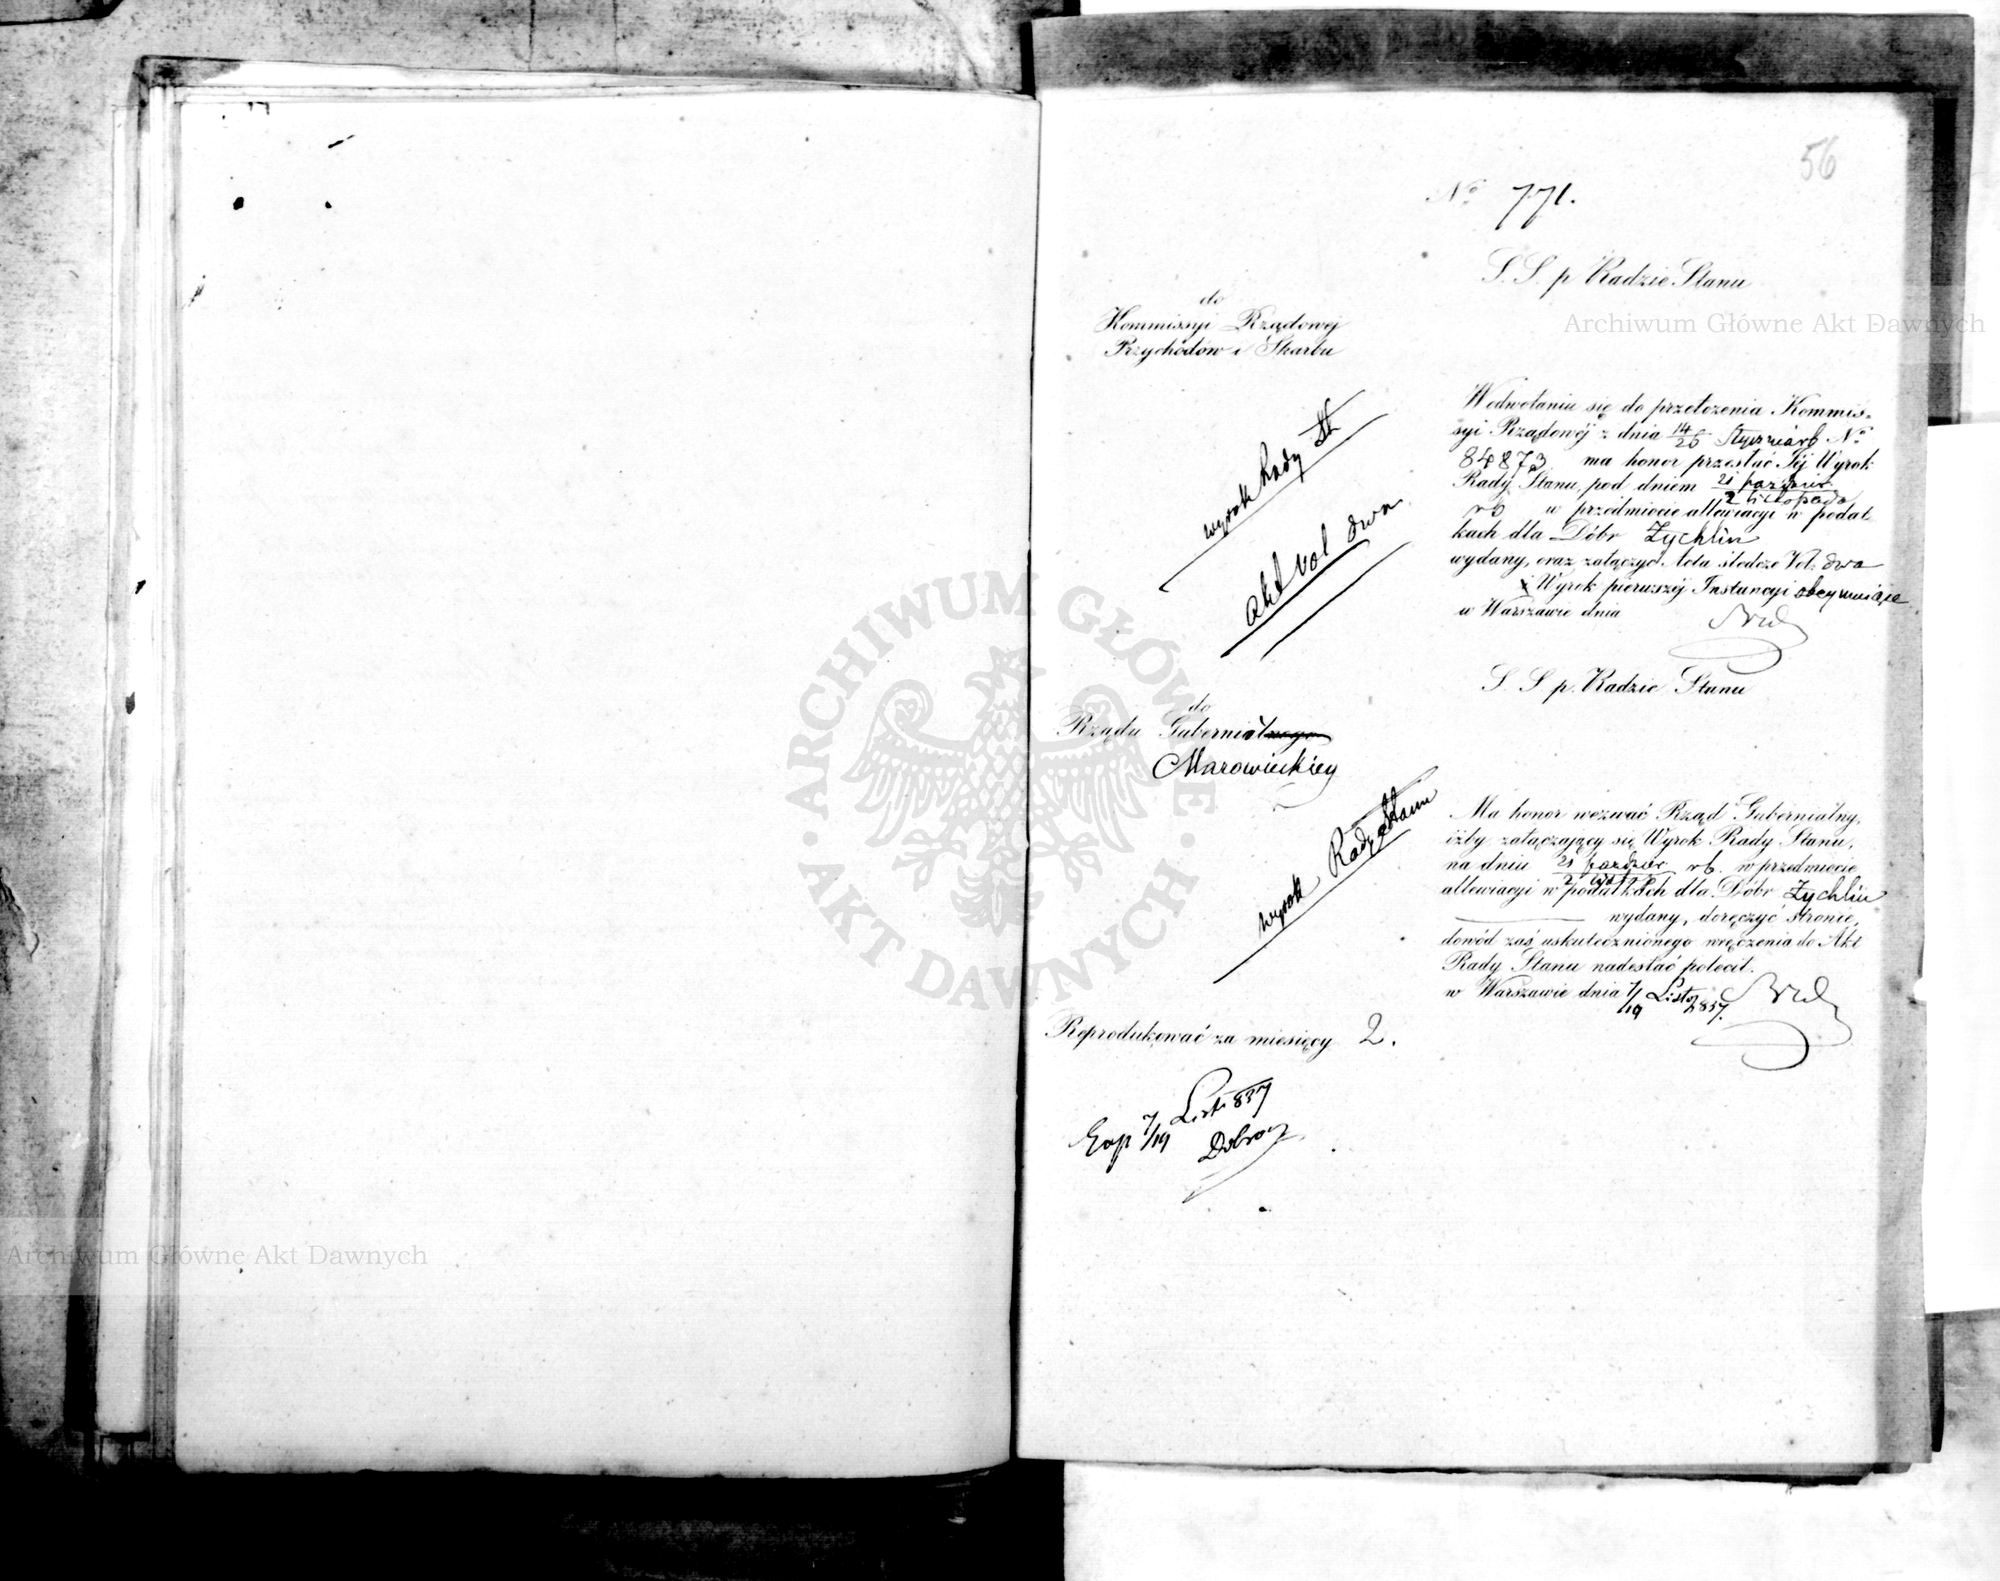 56
No 771.
S. S. p Radzie Stanu
do
Kommissyi Rządowej
Przychodów i Skarbu
W odwołaniu się do przełożenia Kommis-
syi Rządowéj z dnia 14/26 Stycznia rb No
84873 ma honor przesłać Jéj Wyrok
Rady Stanu pod dniem 21 paździer
2 listopada
rb w przedmiocie allewiacyi w podat-
kach dla Dóbr Żychlin
wydany, oraz załączyć Acta śledcze Vol. dwa
i Wyrok pierwszéj Instancyi obeymujące
w Warszawie dnia
wyrok Rady St
akt vol dwa
S. S p. Radzie Stanu
do
Rządu Gubernialnego
Mazowieckiey
Ma honor wezwać Rząd Gubernialny,
iżby załączający się Wyrok Rady Stanu,
na dniu 21 paździer rb. w przedmiocie
2 list
allewiacyi w podatkach dla Dóbr Żychlin
wydany, doręczyć stronie,
dowód zaś uskutecznionego wręczenia do Akt
Rady Stanu nadesłać polecił.
w Warszawie dnia 7/19 Listo 837.
wyrok Rady Stanu
Reprodukować za miesięcy 2.
Exp 7/19 List 837
Archiwum Główne Akt Dawnych
Archiwum Główne Akt Dawnych
ARCHIWUM GŁÓWNE · AKT DAWNYCH ·